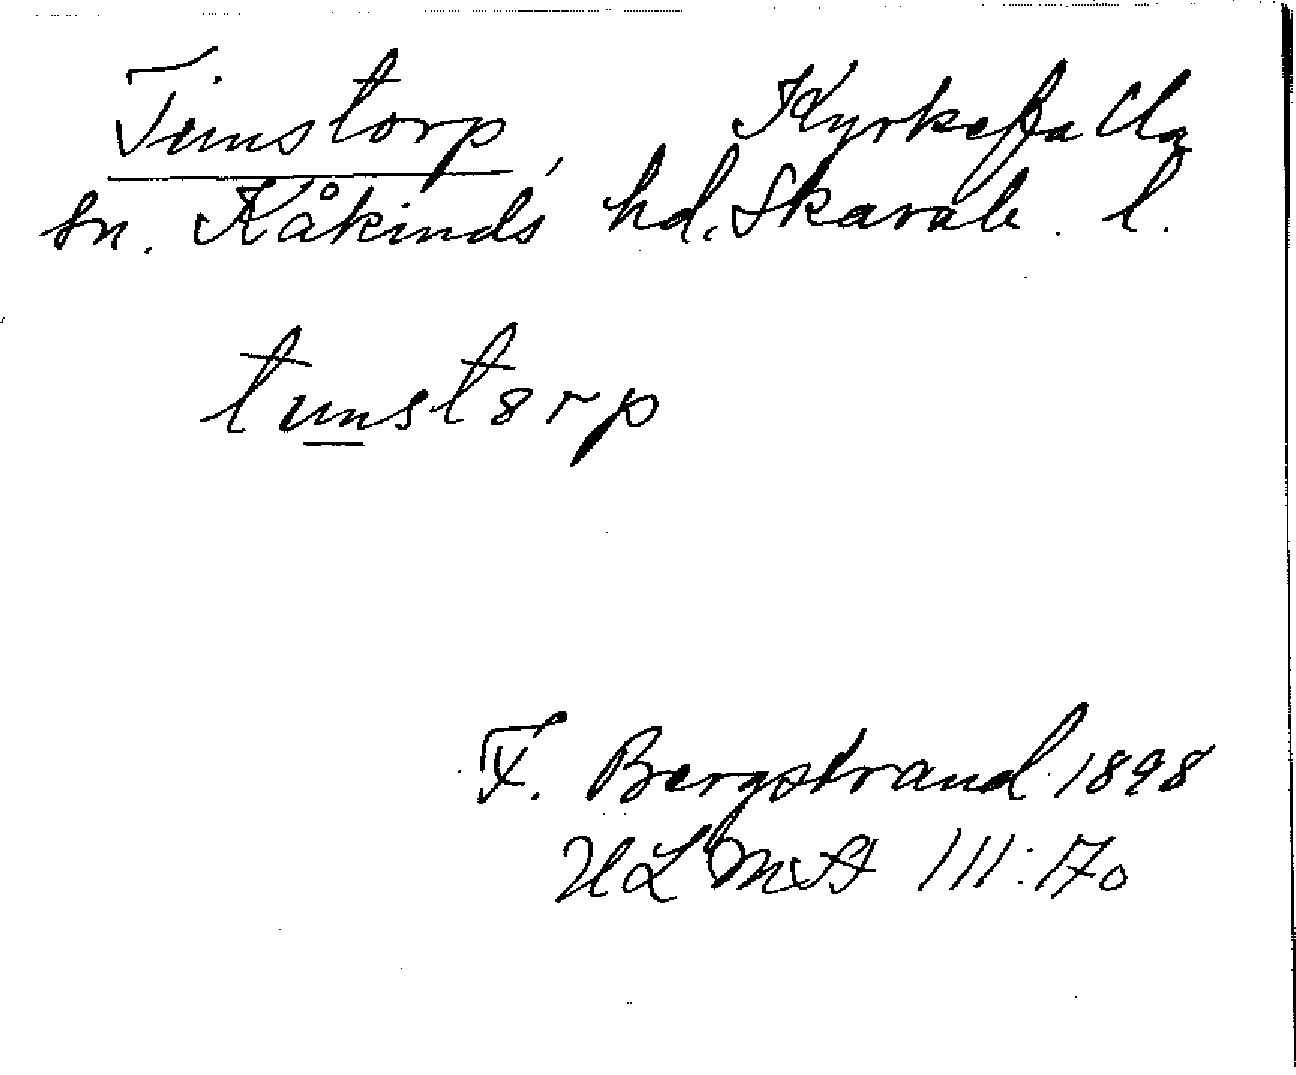 Timstorp, Kyrkefalla
sn. Kåkinds hd. Skarab. l.
tumstorp
F. Bergstrand 1898
ULMA III:170